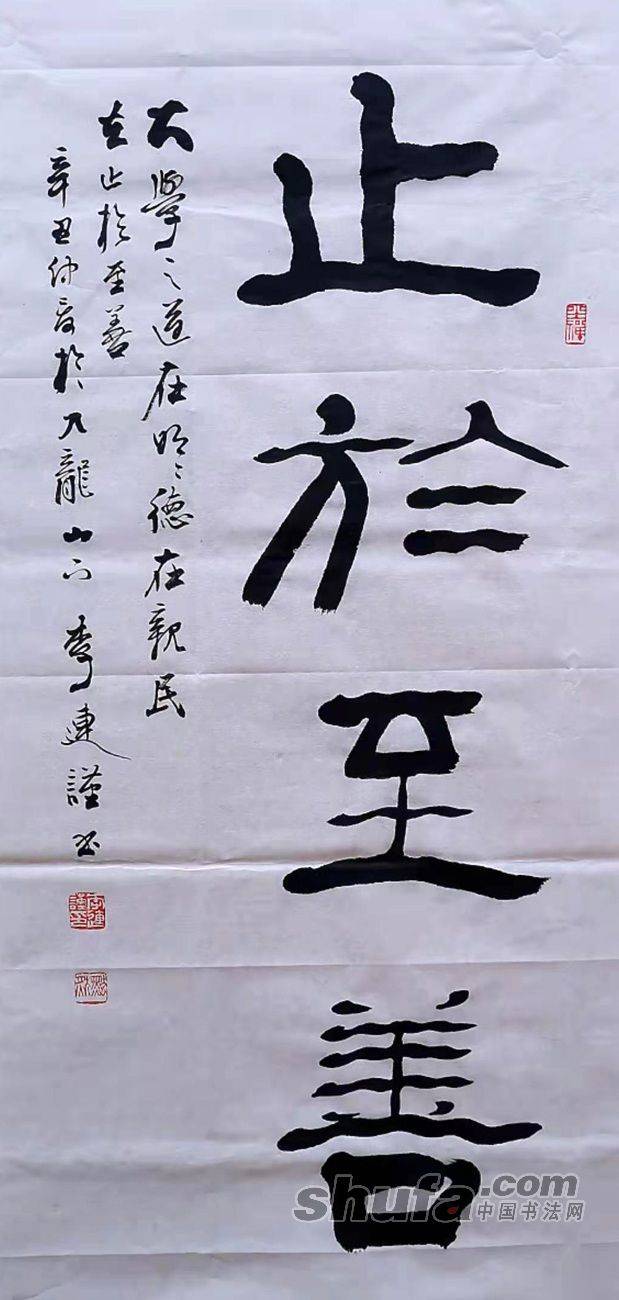 止於至善
大學之道在明〻德在親民
在止於至善
辛丑仲夏於九龍山下季連謹书
shufa.com
中国书法网